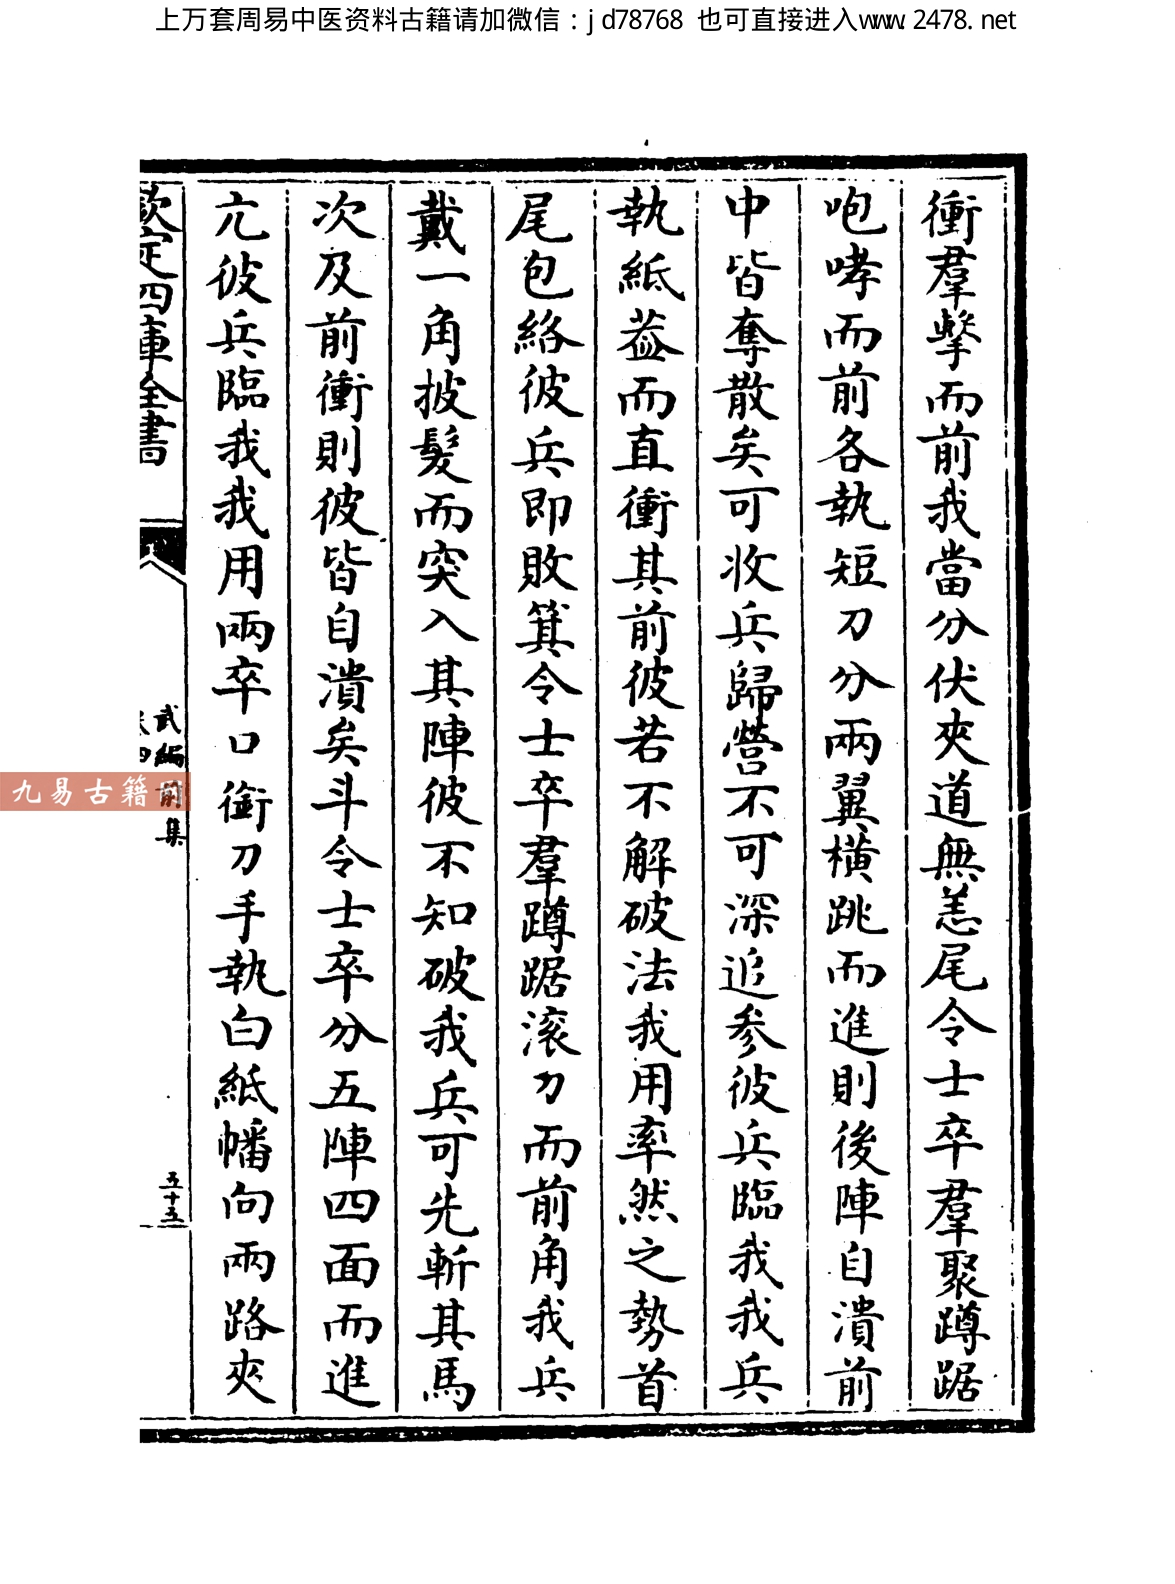 上万套周易中医资料古籍请加微信：jd78768 也可直接进入www.2478.net
衝羣擊而前我當分伏夾道無恙尾令士卒羣聚蹲踞
咆哮而前各執短刀分兩翼橫跳而進則後陣自潰前
中皆奪散矣可收兵歸營不可深追參彼兵臨我我兵
執紙蓋而直衝其前彼若不解破法我用率然之勢首
尾包絡彼兵即敗箕令士卒羣蹲踞滚刀而前角我兵
戴一角披髮而突入其陣彼不知破我兵可先斬其馬
次及前衝則彼皆自潰矣斗令士卒分五陣四面而進
亢彼兵臨我我用兩卒口銜刀手執白紙幡向兩路夾
欽定四庫全書
武編前集
五十五
九易古籍